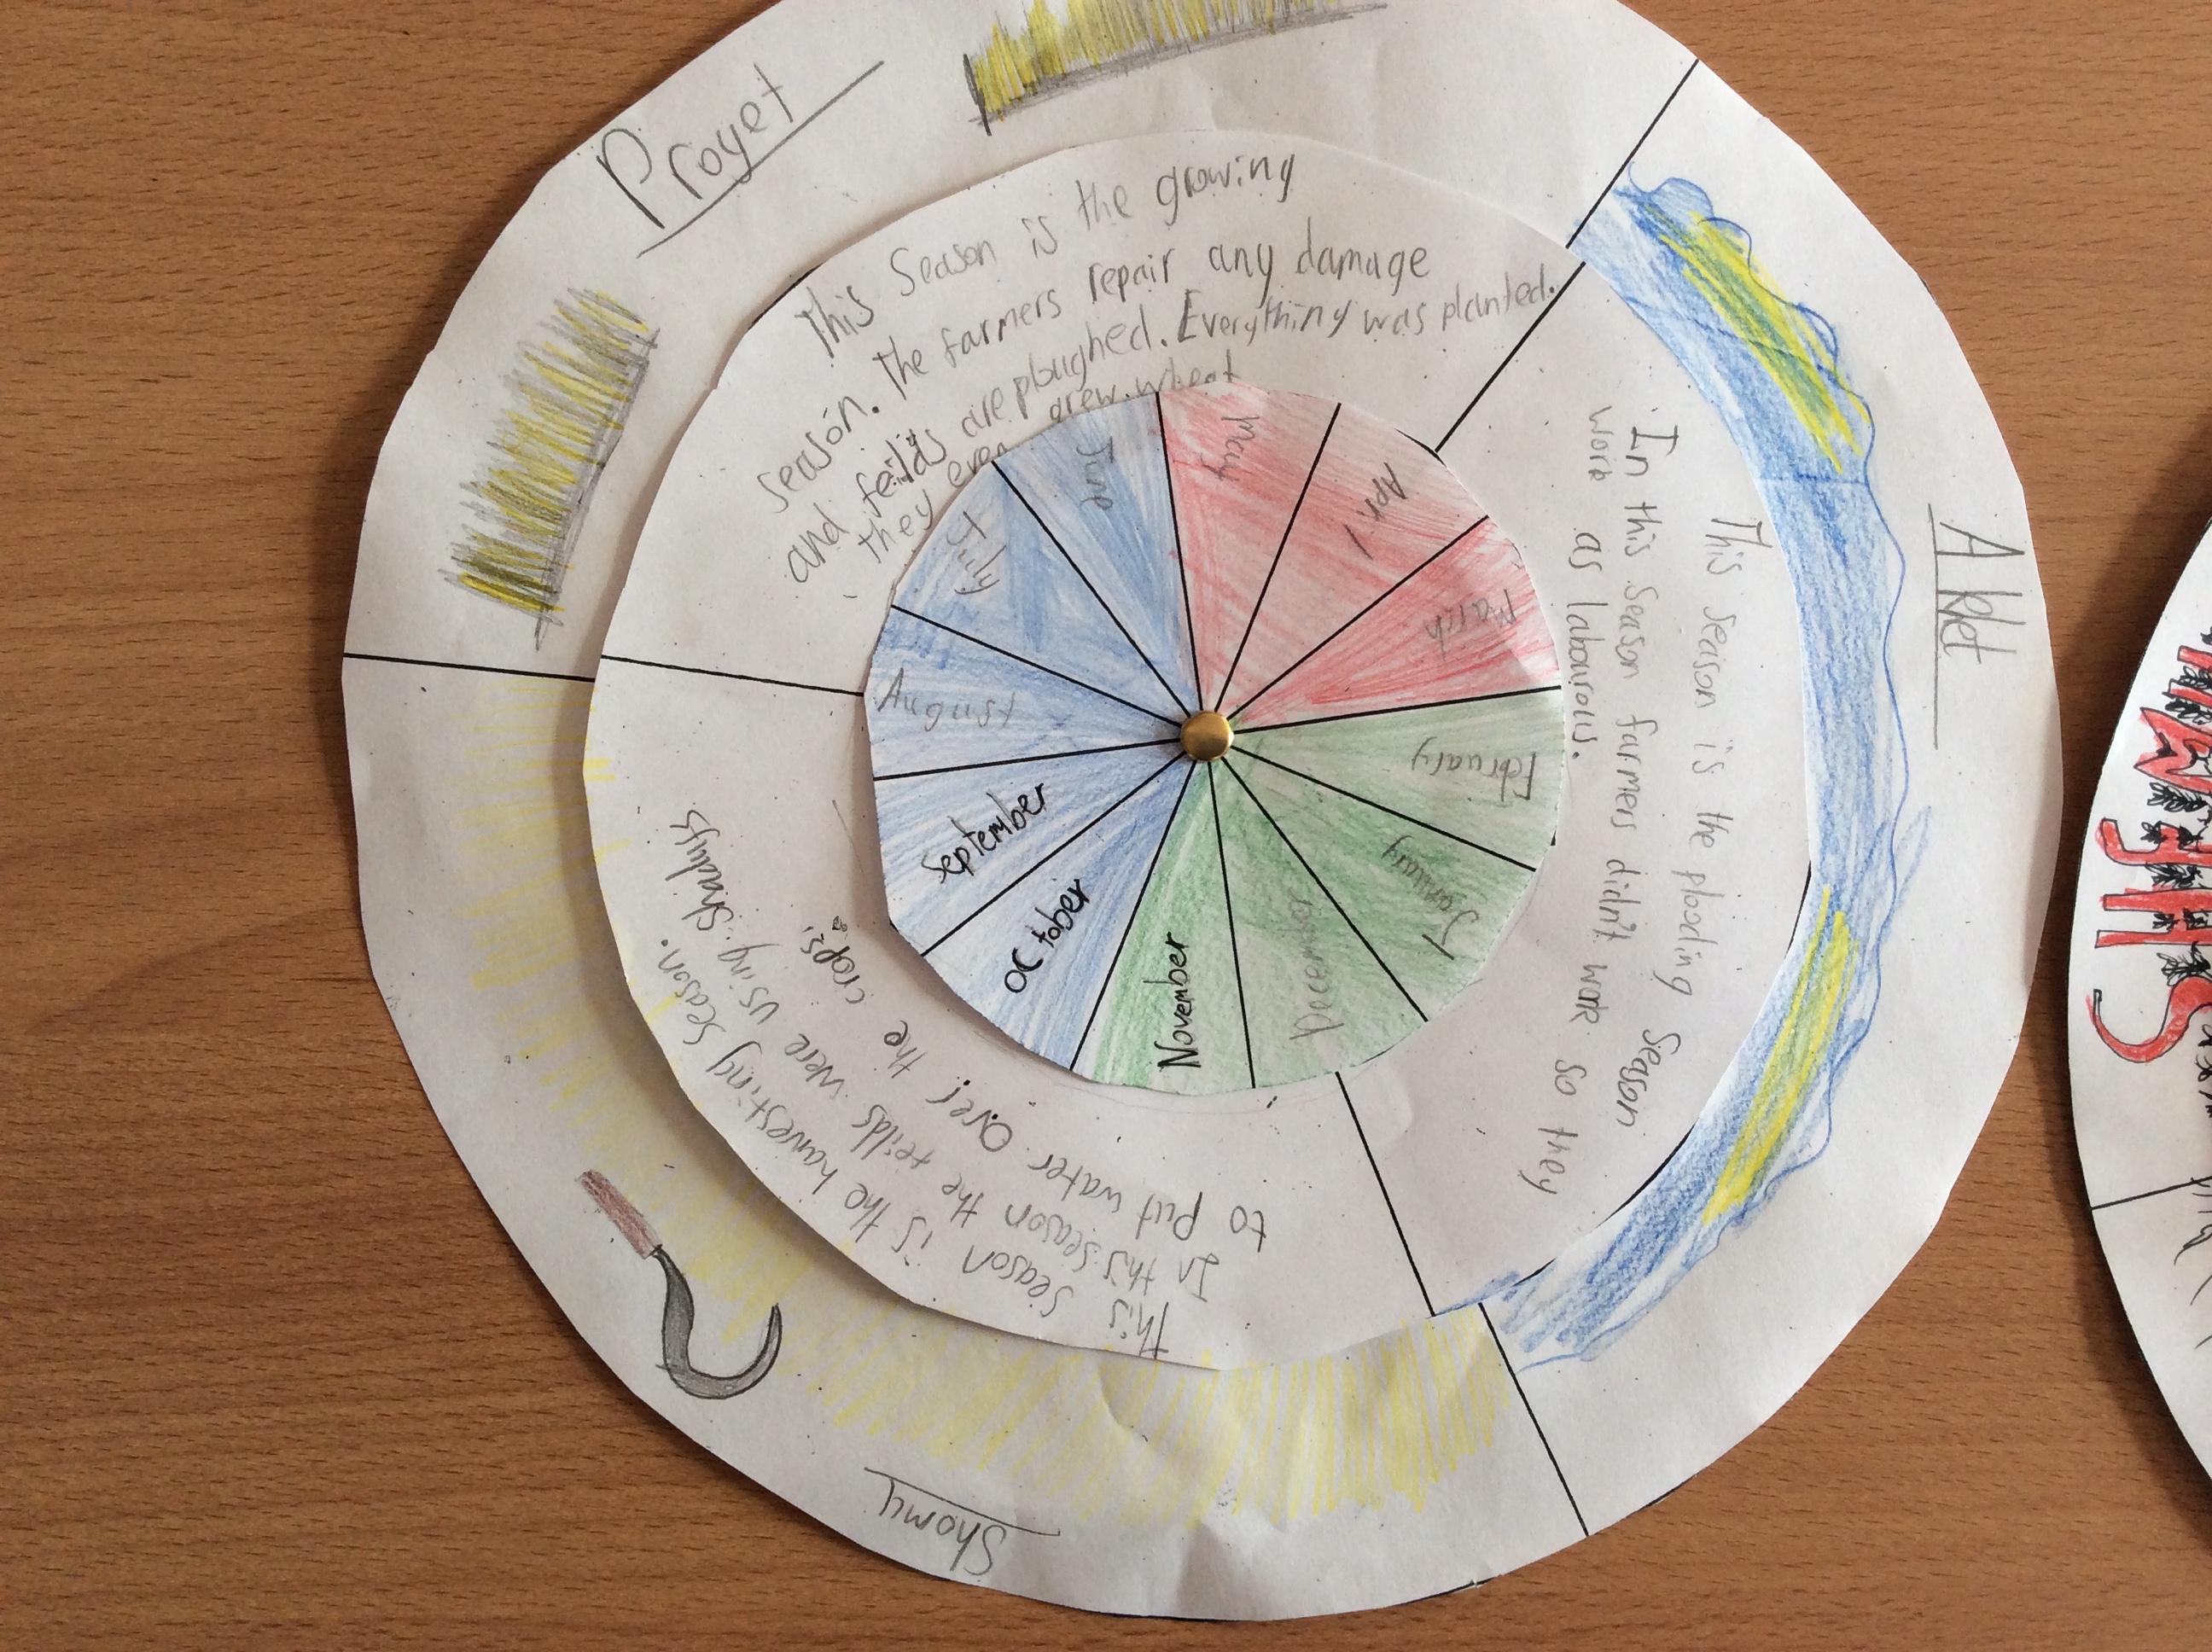 Proyet
This Season is the growing
season. The farmers repair any damage
and feilds are ploughed. Everything was planted.
they even grew wheat
Aklet
This season is the plooding season
In this season farmers didn't work so they
work as labourous.
Shomy
This season is the harvesting season.
In this season the feilds were using shadufs
to put water over the crops.
January
February
March
April
May
June
July
August
September
October
November
December